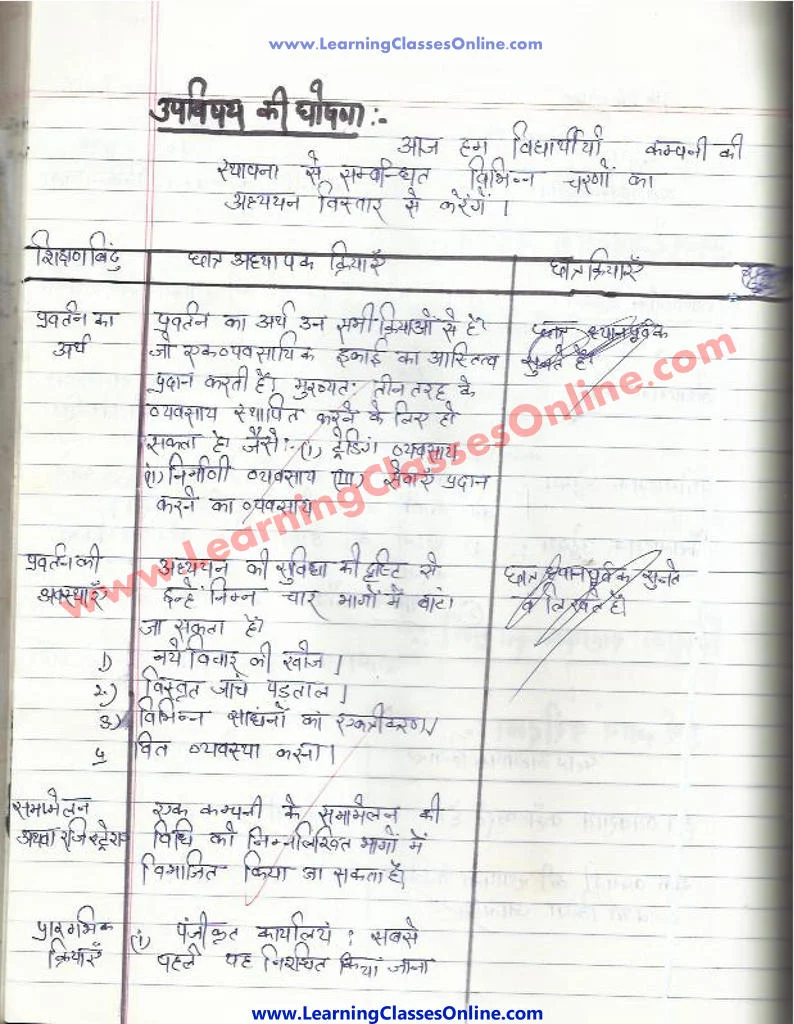 www.LearningClassesOnline.com
उपविषय की घोषणा:-
आज हम विद्यार्थीयों कम्पनी की
स्थापना से सम्बन्धित विभिन्न चरणों का
अध्ययन विस्तार से करेंगें।
शिक्षण बिंदु छात्र अध्यापक क्रियाएँ छात्र क्रियाएँ
प्रवर्तन का प्रवर्तन का अर्थ उन सभी क्रियाओं से है। छात्र ध्यानपूर्वक
अर्थ जो एक व्यवसायिक इकाई का आस्तित्व सुनते है।
प्रदान करती है। मुख्यतः तीन तरह के
व्यवसाय स्थापित करने के लिए हो
सकता है। जैसे:- (i) ट्रेडिंग व्यवसाय
(ii) निर्माणी व्यवसाय (iii) सेवाएँ प्रदान
करने का व्यवसाय
www.LearningClassesOnline.com
प्रवर्तन की अध्ययन की सुविधा की दृष्टि से छात्र ध्यानपूर्वक सुनते
अवस्थाएँ इन्हें निम्न चार भागों में बांटा व लिखते है।
जा सकता है।
1) नये विचार की खोज।
2.) विस्तृत जांच पड़ताल।
3) विभिन्न साधनों का एकत्रीकरण।
4 वित व्यवस्था करना।
समामेलन एक कम्पनी के समामेलन की
अथवा रजिस्ट्रेशन विधि को निम्नलिखित भागों में
विभाजित किया जा सकता है।
प्रारम्भिक (i) पंजीकृत कार्यालय : सबसे
क्रियाएँ पहले यह निश्चित किया जाना
www.LearningClassesOnline.com